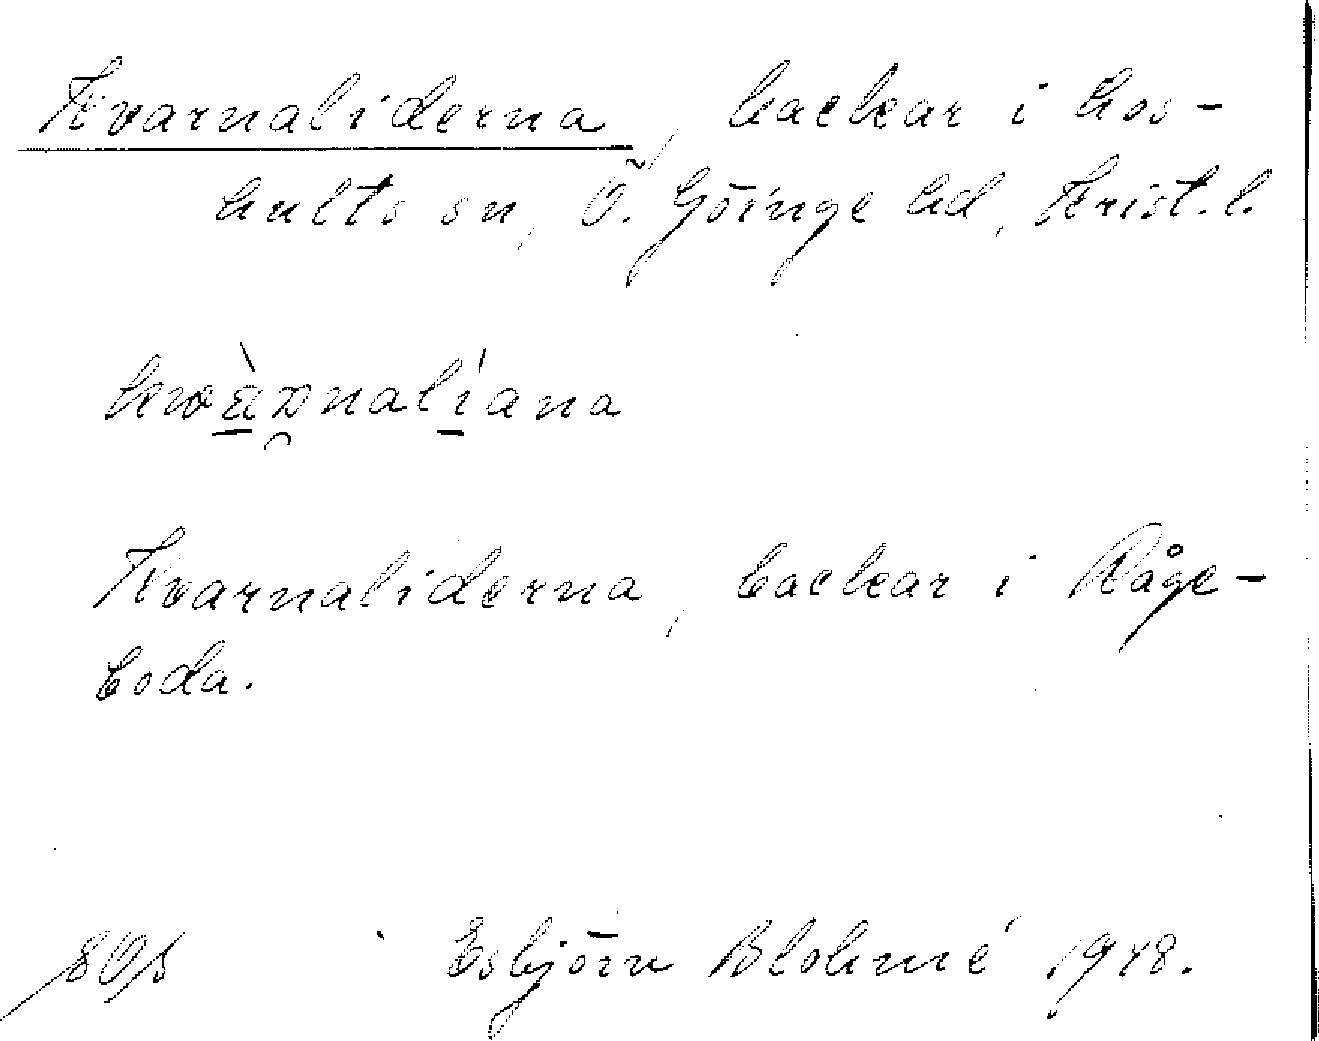 Kvarnaliderna, backar i Los-
hults sn, Ö. Göinge hd, Krist. l.
Kvarnaliderna, backar i Råge-
boda.
Esbjörn Blohmé 1948.